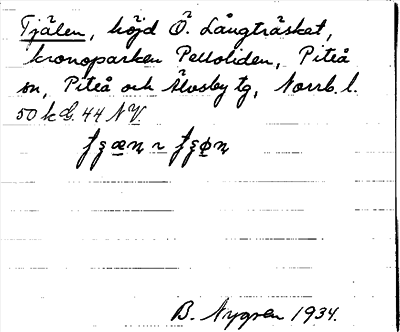 Tjälen, höjd Ö. Långträsket,
kronoparken Pelloliden, Piteå
sn, Piteå och Älvsby tg, Norrb. l.
50 k G. 44 NV.
B. Nygren 1934.